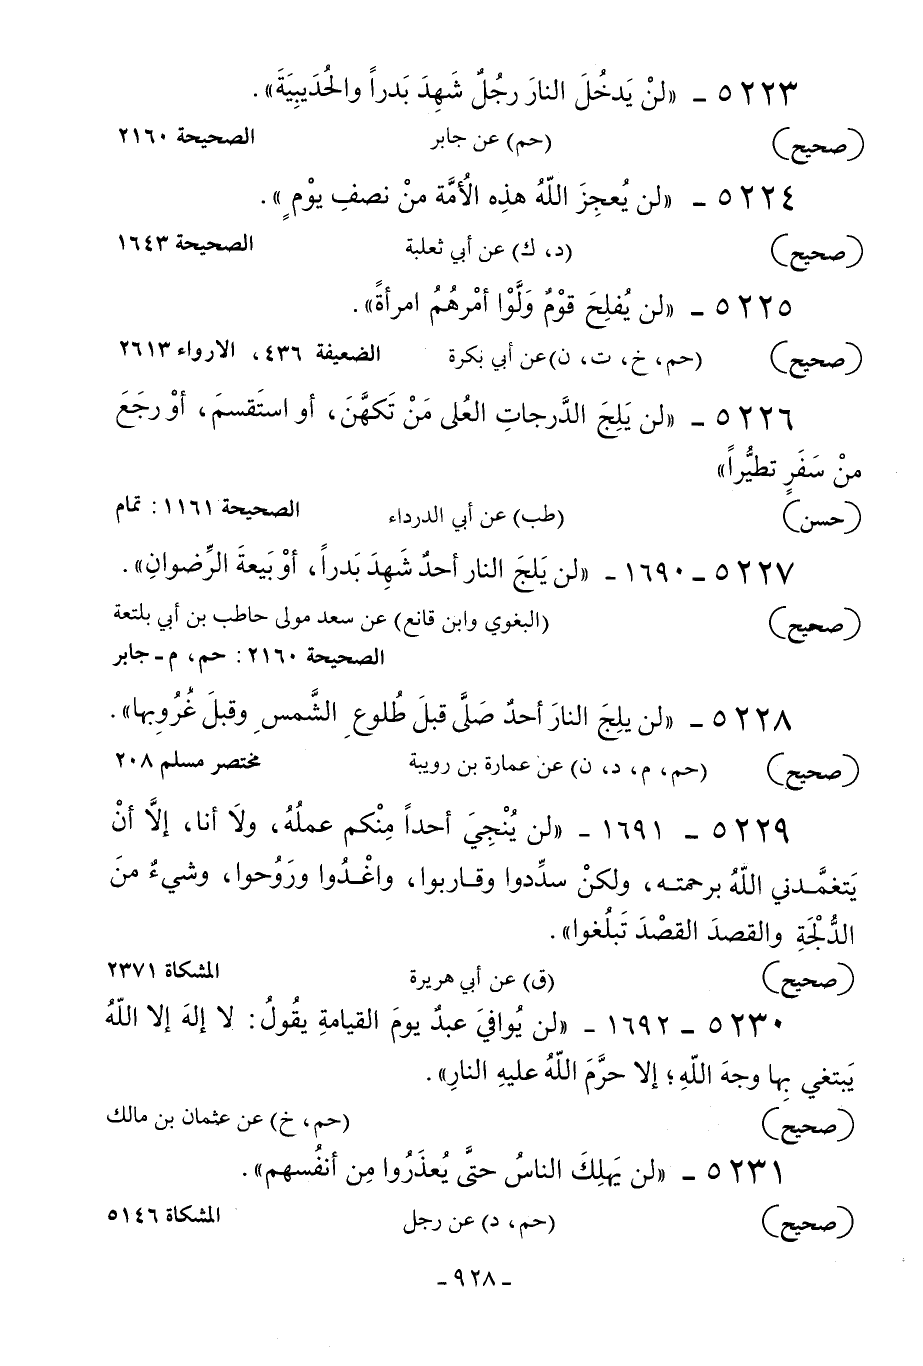 ٥٢٢٣ ـ «لنْ يَدخُلَ النارَ رجُلٌ شَهِدَ بَدراً والحُدَيبِيَةَ».
(صحيح) (حم) عن جابر الصحيحة ٢١٦٠
٥٢٢٤ ـ «لن يُعجِزَ اللّهُ هذِه الأُمَّة منْ نصفِ يوْمٍ».
(صحيح) (د، ك) عن أبي ثعلبة الصحيحة ١٦٤٣
٥٢٢٥ ـ «لن يُفلِحَ قوْمٌ وَلَّوْا أمْرهُمُ امرأةً».
(صحيح) (حم، خ، ت، ن)عن أبي بكرة الضعيفة ٤٣٦، الارواء ٢٦١٣
٥٢٢٦ ـ «لن يَلِجَ الدَّرجاتِ العُلى مَنْ تَكهَّنَ، أو استَقسمَ، أوْ رجَعَ
منْ سَفَرٍ تطيُّراً»
(حسن) (طب) عن أبي الدرداء الصحيحة ١١٦١: تمام
٥٢٢٧ ـ ١٦٩٠ ـ «لن يَلجَ النار أحدٌ شَهِدَ بَدراً، أوْ بَيعةَ الرِّضوانِ».
(صحيح) (البغوي وابن قانع) عن سعد مولى حاطب بن أبي بلتعة
الصحيحة ٢١٦٠: حم، م ـ جابر
٥٢٢٨ ـ «لن يلِجَ النارَ أحدٌ صَلَّى قبلَ طُلوعِ الشَّمسِ وقبلَ غُرُوبِها».
(صحيح) (حم، م، د، ن) عن عمارة بن رويبة مختصر مسلم ٢٠٨
٥٢٢٩ ـ ١٦٩١ ـ «لن يُنْجِيَ أحداً مِنْكم عملُهُ، ولاَ أنا، إلاَّ أنْ
يَتغمَّدني اللّهُ برحمته، ولكنْ سدِّدوا وقاربوا، واغْدُوا ورَوُحوا، وشيءٌ منَ
الدُّلْجَةِ والقصدَ القصْدَ تَبلُغوا».
(صحيح) (ق) عن أبي هريرة المشكاة ٢٣٧١
٥٢٣٠ ـ ١٦٩٢ ـ «لن يُوافيَ عبدٌ يومَ القيامةِ يقُولُ: لا إلهَ إلا اللّهُ
يَبتغي بِها وجهَ اللّهِ؛ إلا حرَّمَ اللّهُ عليهِ النارِ».
(صحيح) (حم، خ) عن عثمان بن مالك
٥٢٣١ ـ «لن يَهلِكَ الناسُ حتَّى يُعذَرُوا مِن أنفُسهم».
(صحيح) (حم، د) عن رجل المشكاة ٥١٤٦
ـ ٩٢٨ ـ